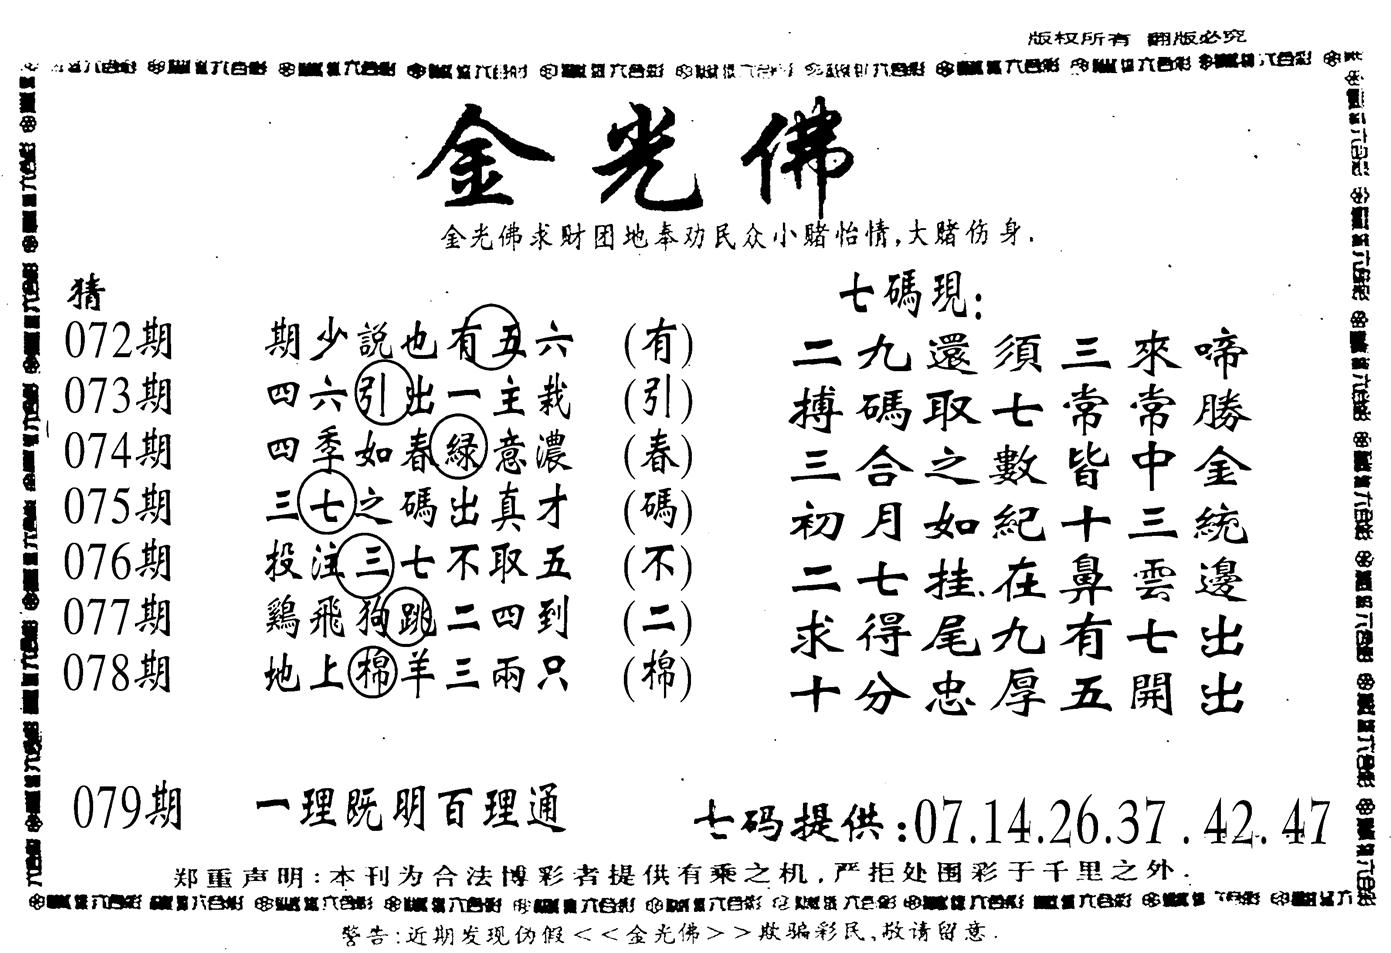 版权所有 翻版必究
金光佛
金光佛求财团地奉劝民众小赌怡情,大赌伤身.
猜
072期 期少説也有五六 (有)
073期 四六引出一主栽 (引)
074期 四季如春緑意濃 (春)
075期 三七之碼出真才 (碼)
076期 投注三七不取五 (不)
077期 鷄飛狗跳二四到 (二)
078期 地上棉羊三兩只 (棉)
七碼現:
二九還須三來啼
搏碼取七常常勝
三合之數皆中金
初月如紀十三統
二七挂在鼻雲邊
求得尾九有七出
十分忠厚五開出
079期 一理既明百理通 七码提供:07.14.26.37.42.47
郑重声明:本刊为合法博彩者提供有乘之机,严拒处围彩于千里之外.
警告:近期发现伪假<<金光佛>>欺骗彩民,敬请留意.